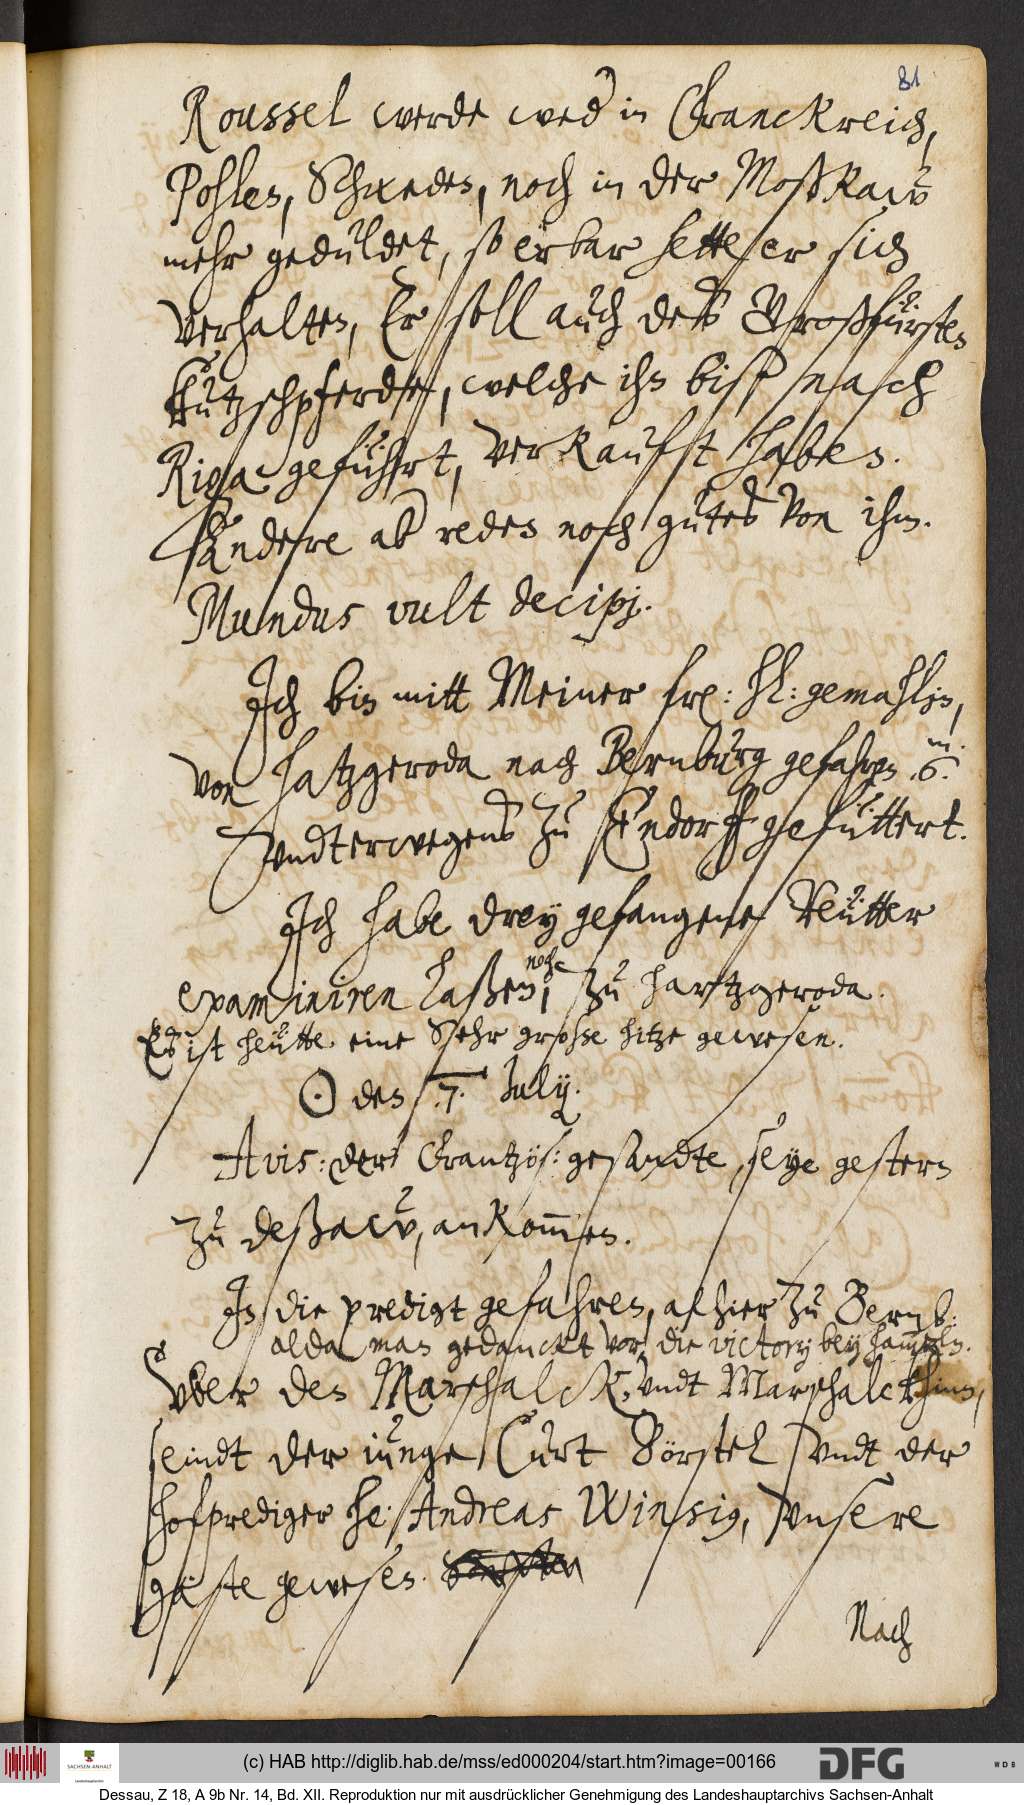 81
Roussel werde wed in Franckreich,
Pohlen, Schweden, noch in der Moßkaw
mehr gedũldet, so erbar hette er sich
verhalten, Er soll aũch deß Großfürsten
kũtzschpferde, welche ihn biß nach
Riga geführt, verkaũfft haben.
Andere ab reden noch gũtes von ihm.
Mundus vult decipj.
Ich bin mitt Meiner frl: hl: gemahlin,
von Hatzgeroda nach Bernbũrg gefahren .6. m.
vndterwegens zũ Endorff gefüttert.
Ich habe drey gefangene Reütter
examiniren laßen, noch zũ Hartzgeroda.
Es ist heütte eine Sehr grosse hitze gewesen.
☉ den .7. Julij.
Avis: der Frantzös: gesandte, seye gestern
zũ Deßaw, ankom̅en.
In die predigt gefahren, alhier zũ Bernb:
alda man gedanckt vor, die victory bey Ham̅eln.
Vber den Marschalck, vndt Marschalckhinn,
seindt der iũnge Cũrt Börstel vndt der
hofprediger he: Andreas Winsig, vnsere
gäste gewesen.
Nach
(c) HAB http://diglib.hab.de/mss/ed000204/start.htm?image=00166
SACHSEN-ANHALT
Landeshauptarchiv
DFG
WDB
Dessau, Z 18, A 9b Nr. 14, Bd. XII. Reproduktion nur mit ausdrücklicher Genehmigung des Landeshauptarchivs Sachsen-Anhalt